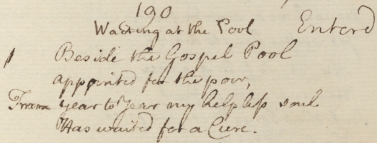 190
Waiting at the Pool Enterd
1 Beside the Gospel Pool
appointed for the poor,
From year to Year my helpless soul
Has waited for a Cure.